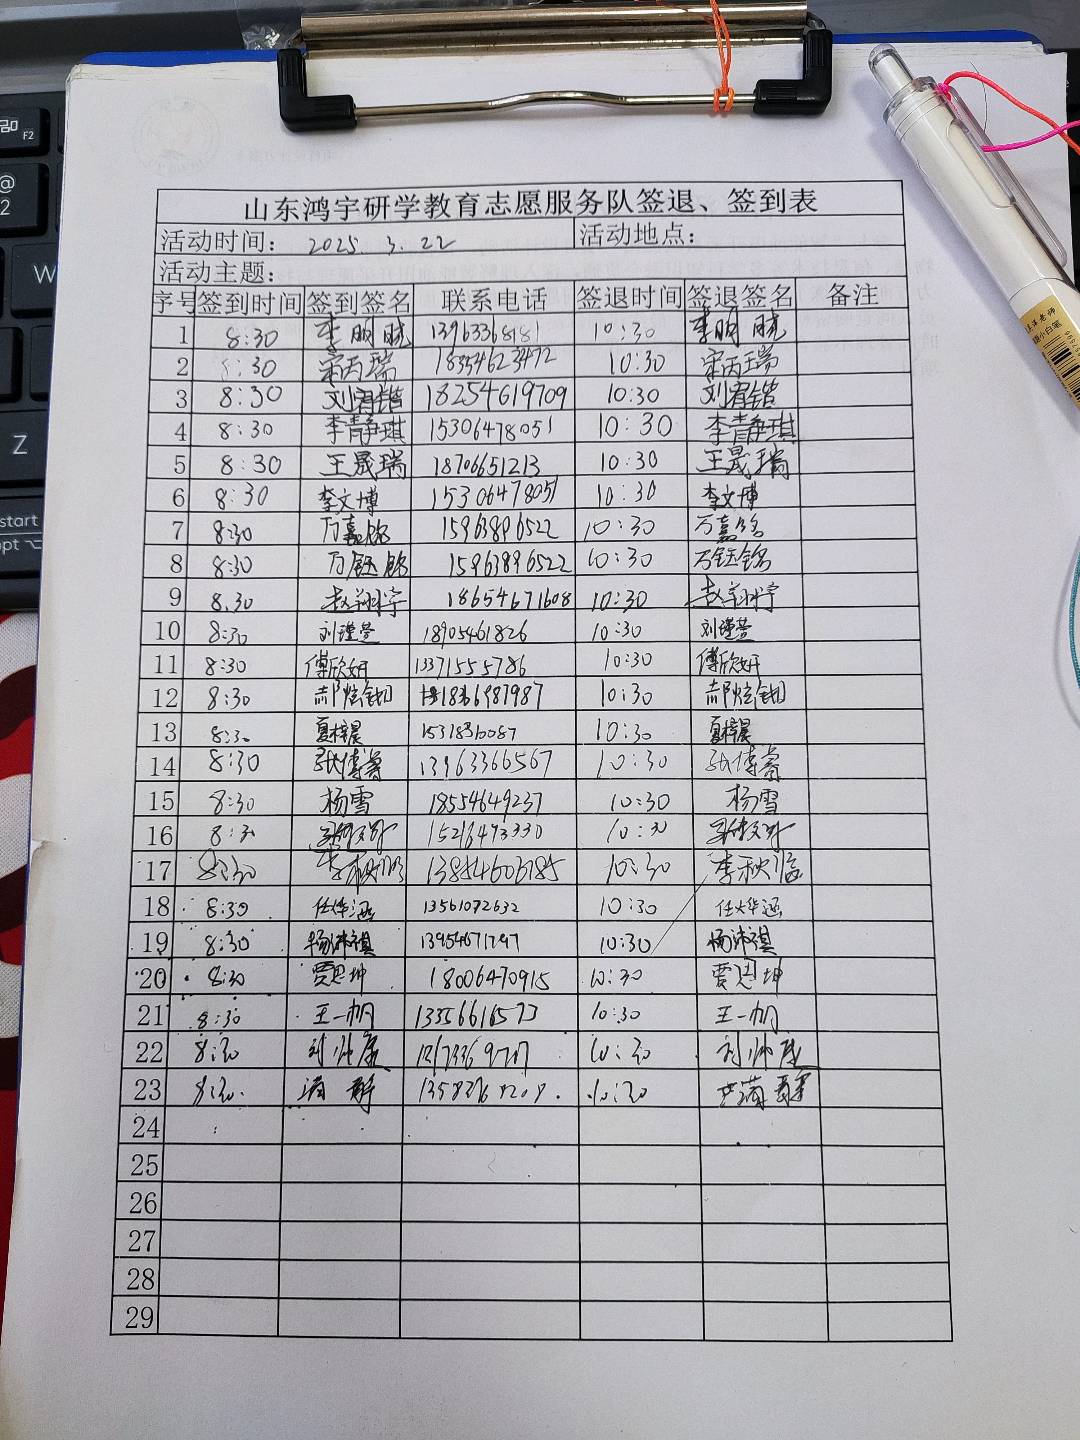 山东鸿宇研学教育志愿服务队签退、签到表
活动时间: 2025. 3. 22 活动地点:
活动主题:
序号 签到时间 签到签名 联系电话 签退时间 签退签名 备注
1 8:30 李明晓 13963368181 10:30 李明晓
2 8:30 宋丙瑞 18354623472 10:30 宋丙瑞
3 8:30 刘君锴 18254619709 10:30 刘君锴
4 8:30 李静琪 15306478051 10:30 李静琪
5 8:30 王晟瑞 18706651213 10:30 王晟瑞
6 8:30 李文博 15306478051 10:30 李文博
7 8:30 万嘉铭 15963896522 10:30 万嘉铭
8 8:30 万钰铭 15963896522 10:30 万钰铭
9 8.30 赵翔宇 18654671608 10:30 赵翔宇
10 8:30 刘瑾萱 18905461826 10:30 刘瑾萱
11 8:30 傅欣妍 13371555786 10:30 傅欣妍
12 8:30 10:30
13 8:30 夏梓晨 10:30 夏梓晨
14 8:30 张博睿 13963366567 10:30 张博睿
15 8:30 杨雪 18554649237 10:30 杨雪
16 8:30 15216493330 10:30
17 8:30 李秋临 13854606785 10:30 李秋临
18 8:30 任烨涵 13561072632 10:30 任烨涵
19 8:30 杨沛祺 13954671797 10:30 杨沛祺
20 8:30 贾恩坤 18006470915 10:30 贾恩坤
21 8:30 王一帆 13356616573 10:30 王一帆
22 8:30 10:30
23 8:30 10:30
24
25
26
27
28
29
F2
@
2
W
Z
start
opt